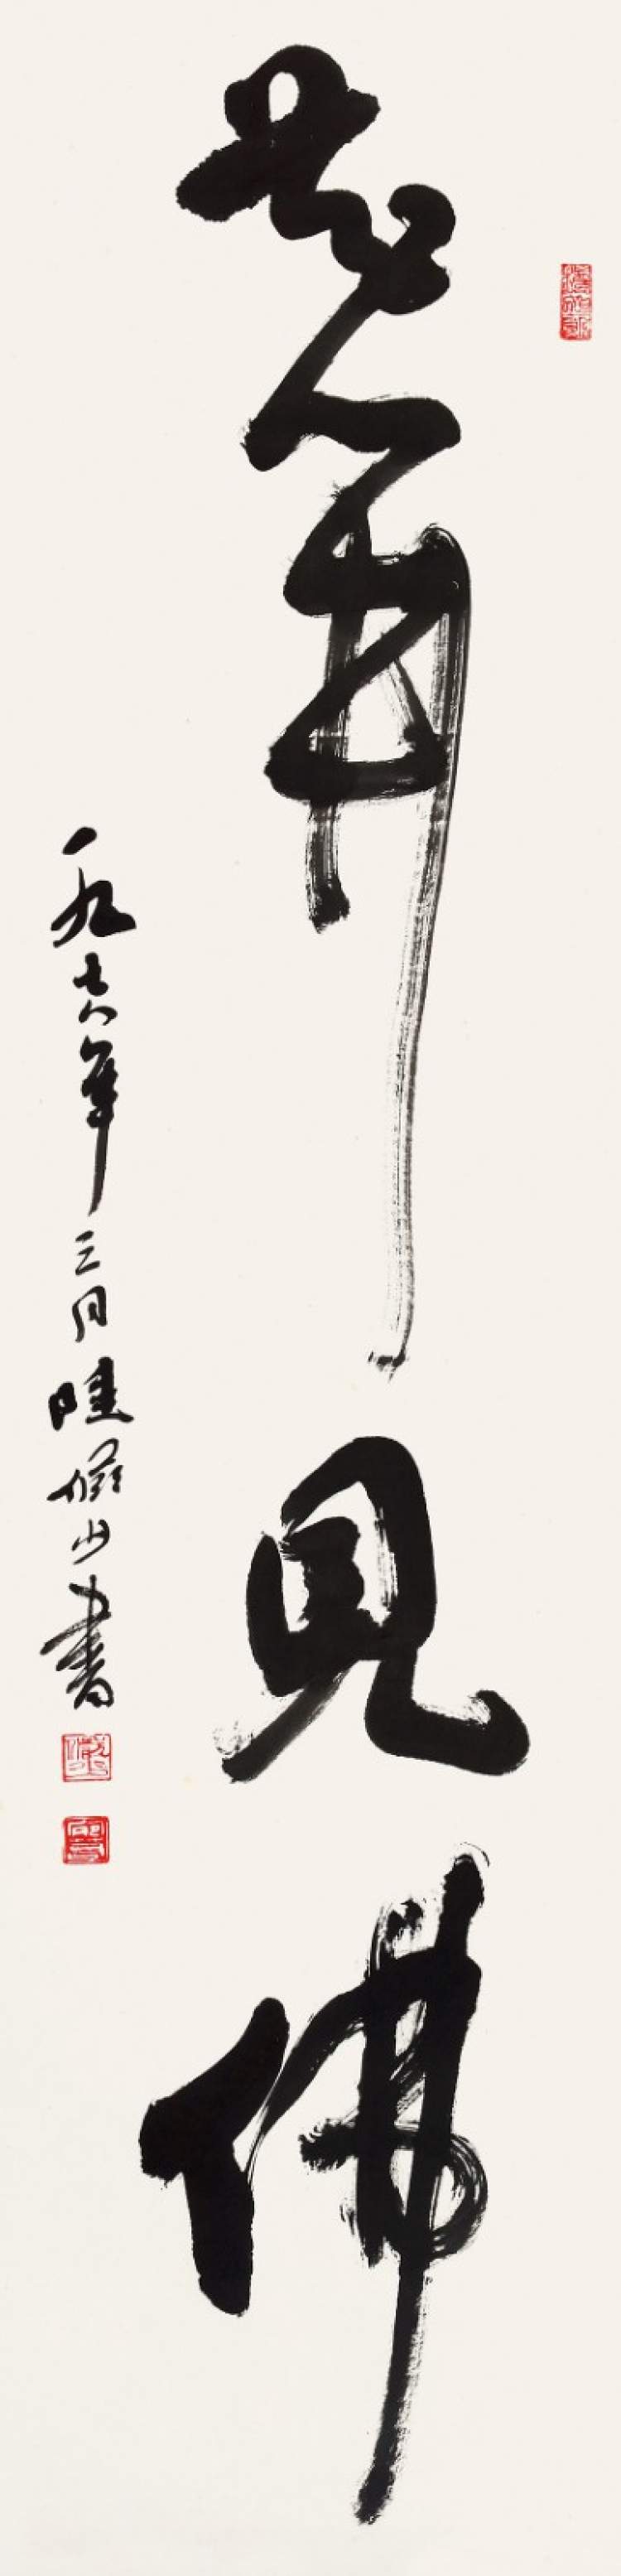 花開見佛
一九七八年三月陸儼少書